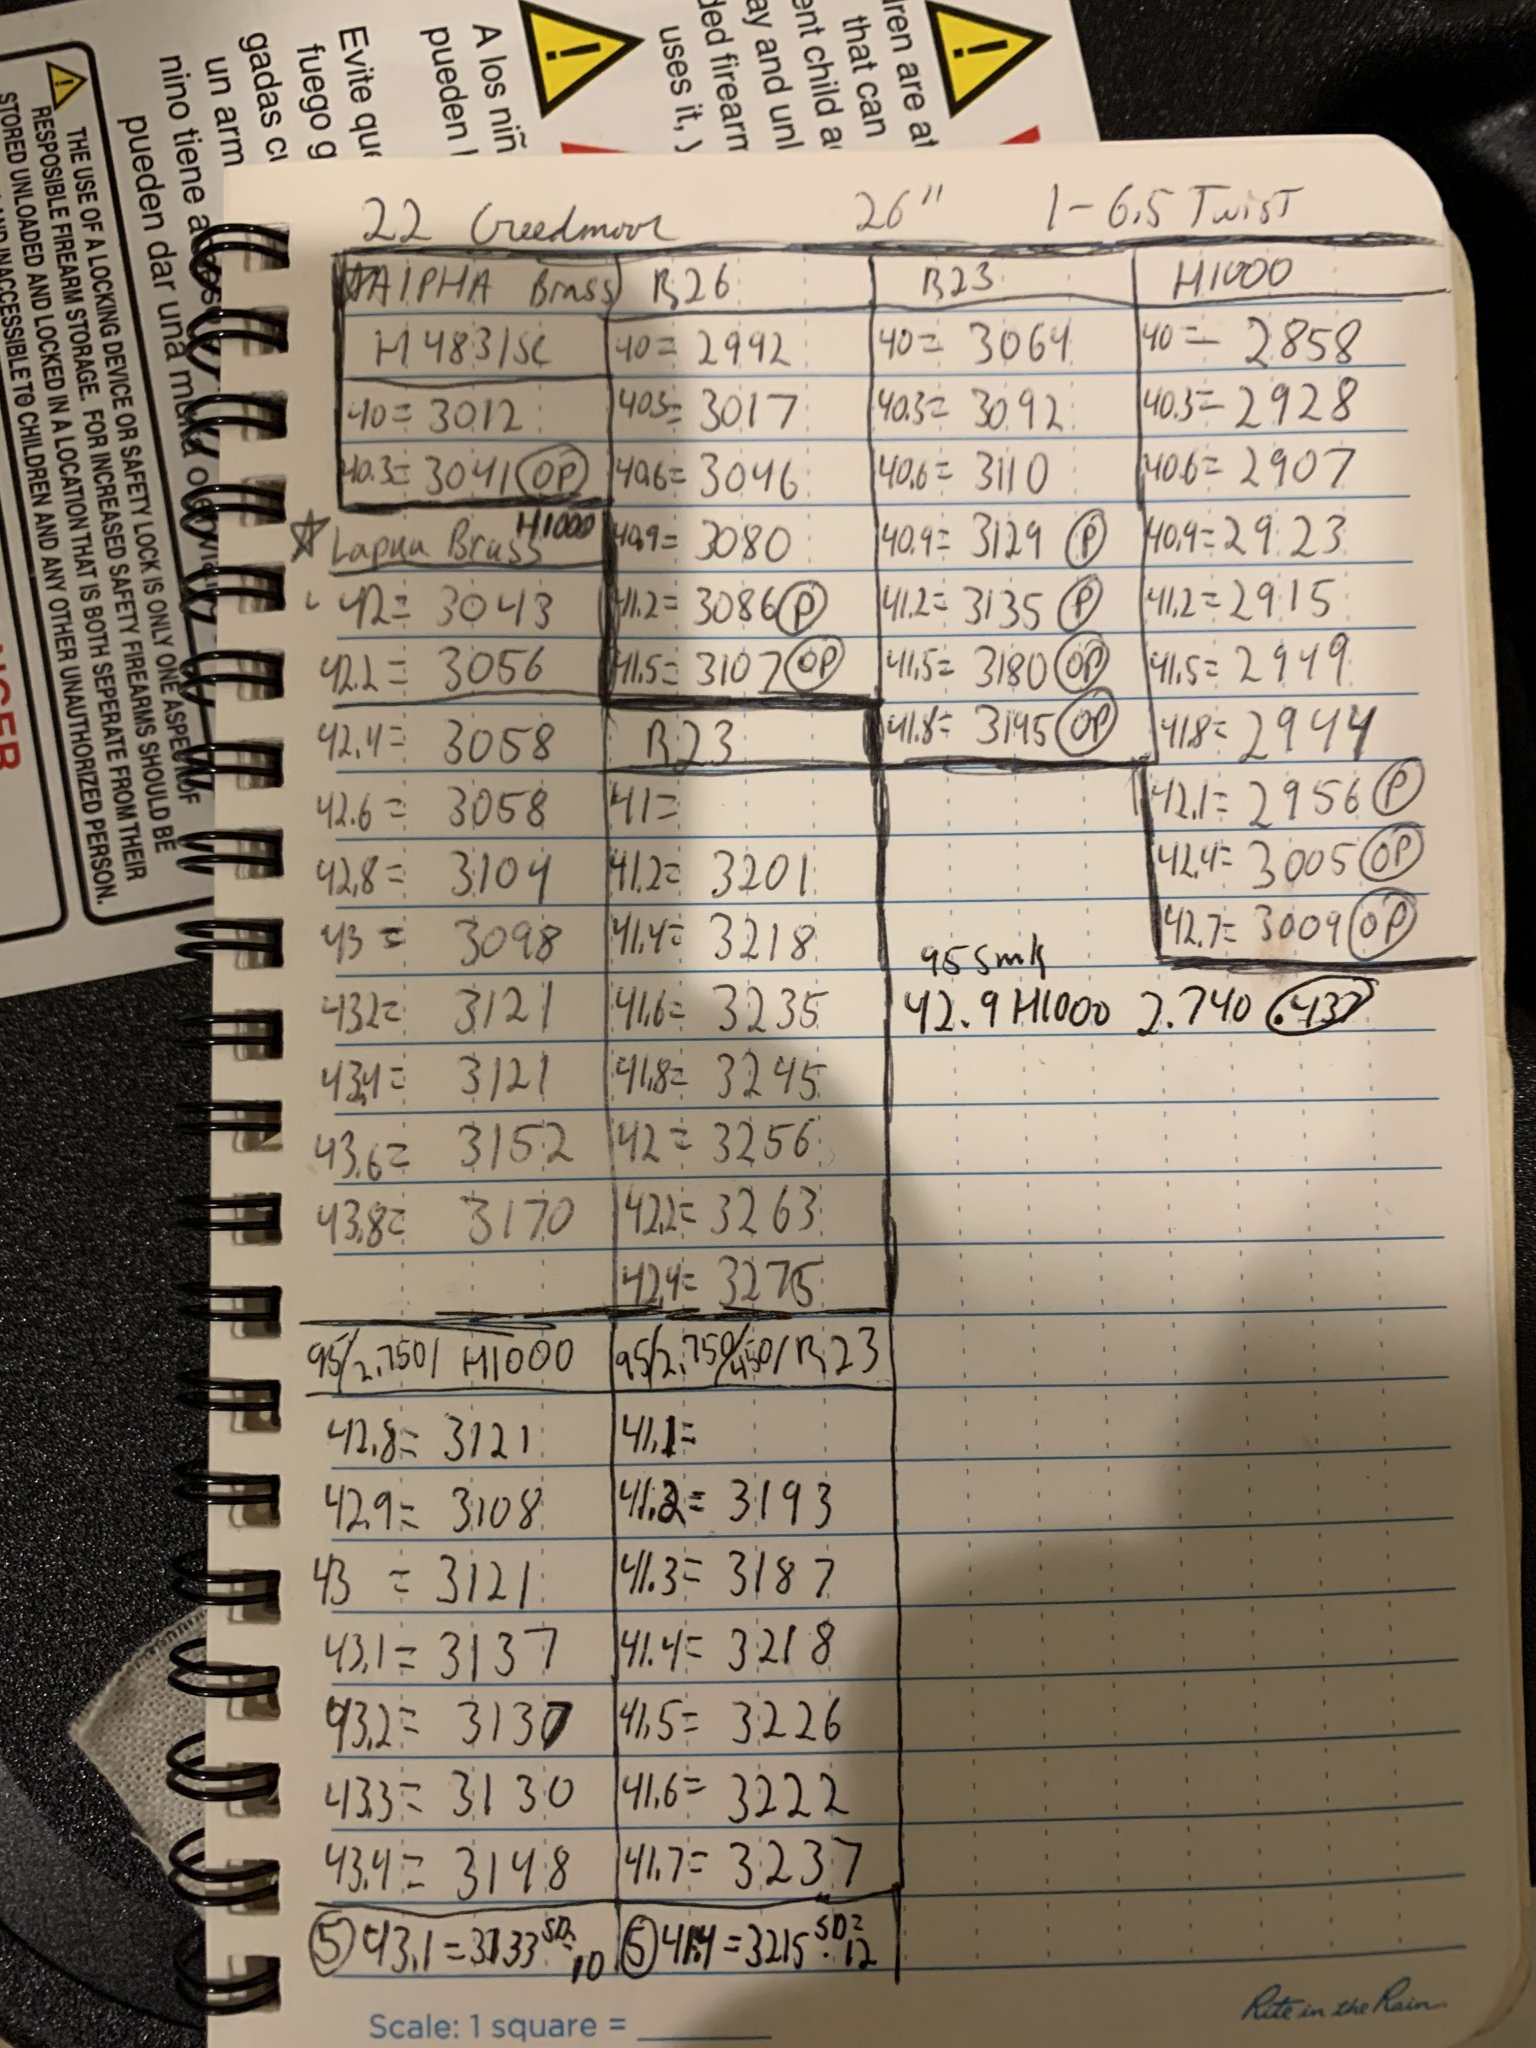 22 Creedmoor 26" 1-6.5 Twist
ALPHA Brass R26 R23 H1000
H4831SC 40= 2992 40= 3064 40= 2858
40= 3012 40.3= 3017 40.3= 3092 40.3= 2928
40.3= 3041 OP 40.6= 3046 40.6= 3110 40.6= 2907
Lapua Brass H1000 40.9= 3080 40.9= 3129 P 40.9= 2923
42= 3043 41.2= 3086 P 41.2= 3135 P 41.2= 2915
42.2= 3056 41.5= 3107 OP 41.5= 3180 OP 41.5= 2949
42.4= 3058 R23 41.8= 3195 OP 41.8= 2944
42.6= 3058 41= 42.1= 2956 P
42.8= 3104 41.2= 3201 42.4= 3005 OP
43 = 3098 41.4= 3218 42.7= 3009 OP
95 smk
43.2= 3121 41.6= 3235 42.9 H1000 2.740 .437
43.4= 3121 41.8= 3245
43.6= 3152 42= 3256
43.8= 3170 42.2= 3263
42.4= 3275
95/2.750/ H1000 95/2.750/.450/R23
42.8= 3121 41.1=
42.9= 3108 41.2= 3193
43 = 3121 41.3= 3187
43.1= 3137 41.4= 3218
43.2= 3130 41.5= 3226
43.3= 3130 41.6= 3222
43.4= 3148 41.7= 3237
5 43.1=3133 SD= 10 5 41.4=3215 SD= 12
Scale: 1 square =
Rite in the Rain
A los niñ
pueden
Evite que
fuego g
gadas
un arm
nino tiene
pueden dar una
dren are at
that can
ent child
ay and unl
ded firearm
uses it,
THE USE OF A LOCKING DEVICE OR SAFETY LOCK IS ONLY ONE ASPECT OF
RESPOSIBLE FIREARM STORAGE. FOR INCREASED SAFETY FIREARMS SHOULD BE
STORED UNLOADED AND LOCKED IN A LOCATION THAT IS BOTH SEPERATE FROM THEIR
AND INACCESSIBLE TO CHILDREN AND ANY OTHER UNAUTHORIZED PERSON.